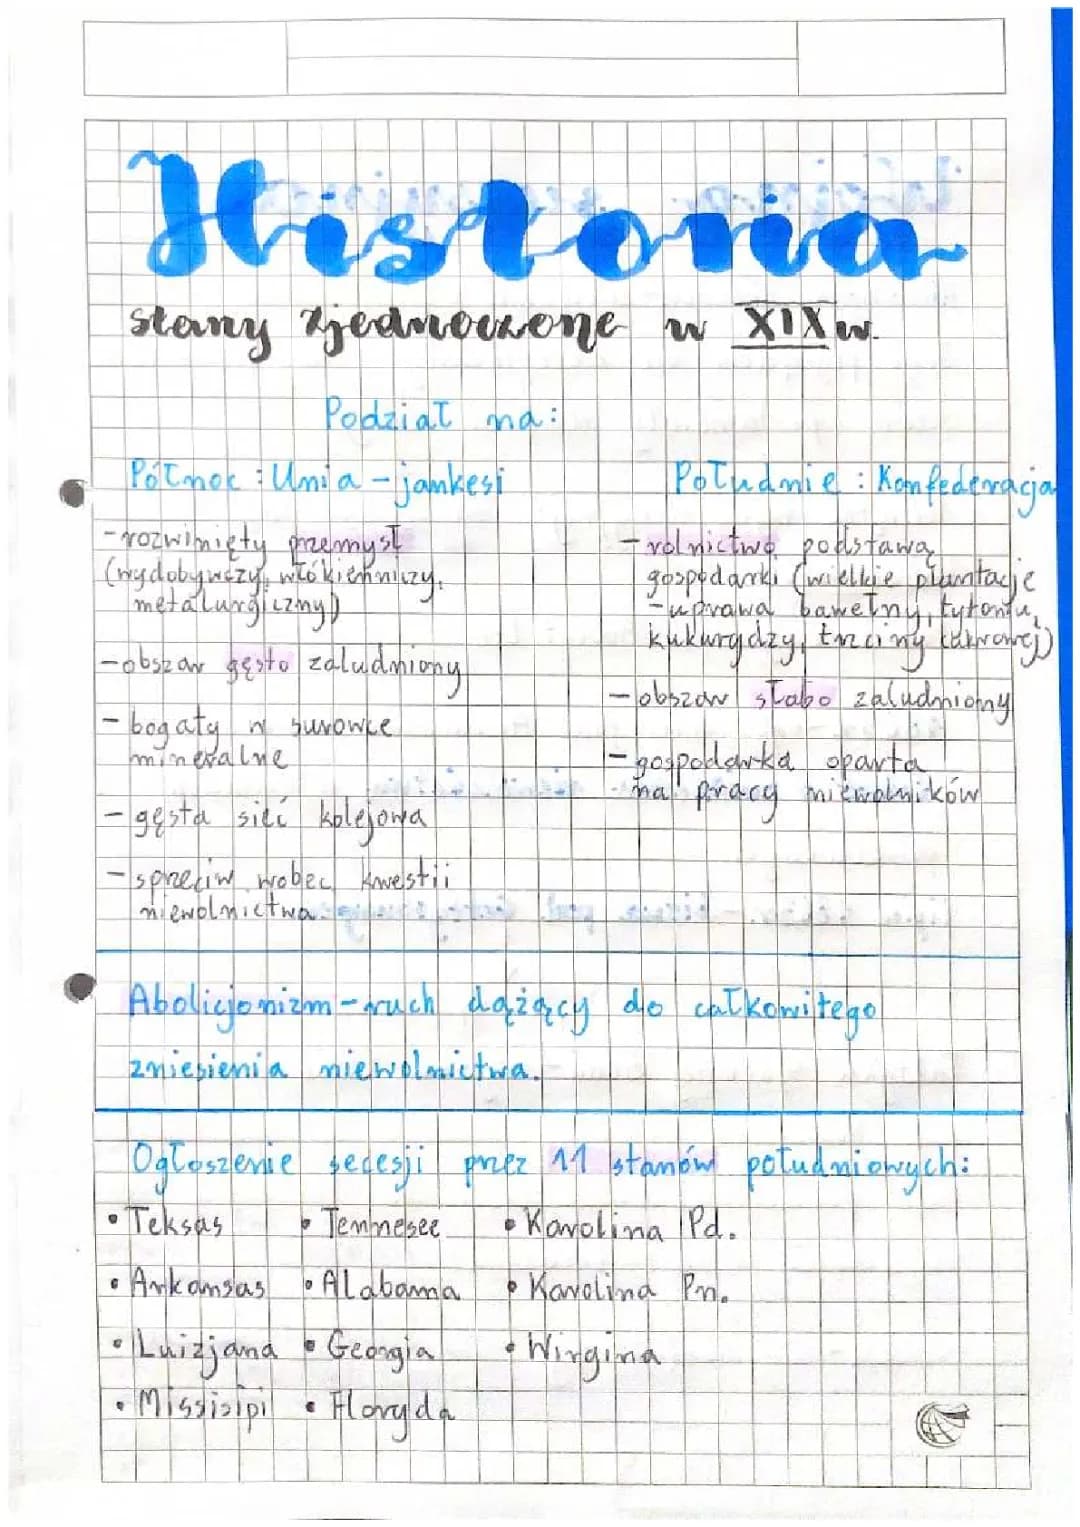 Historia
stany zjednoczone w XIX w.
Podział na:
Północ : Unia - jankesi
- rozwinięty przemysł
(wydobywczy, włókienniczy,
metalurgiczny)
- obszar gęsto zaludniony
- bogaty w surowce
mineralne
- gęsta sieć kolejowa
- sprzeciw wobec kwestii
niewolnictwa.
Południe : Konfederacja
- rolnictwo podstawą
gospodarki (wielkie plantacje
- uprawa bawełny, tytoniu,
kukurydzy, trzciny cukrowej)
- obszar słabo zaludniony
- gospodarka oparta
na pracy niewolników
Abolicjonizm - ruch dążący do całkowitego
zniesienia niewolnictwa.
Ogłoszenie secesji przez 11 stanów południowych:
• Teksas • Tennesee • Karolina Pd.
• Arkansas • Alabama • Karolina Pn.
• Luizjana • Georgia • Wirgina
• Missisipi • Floryda